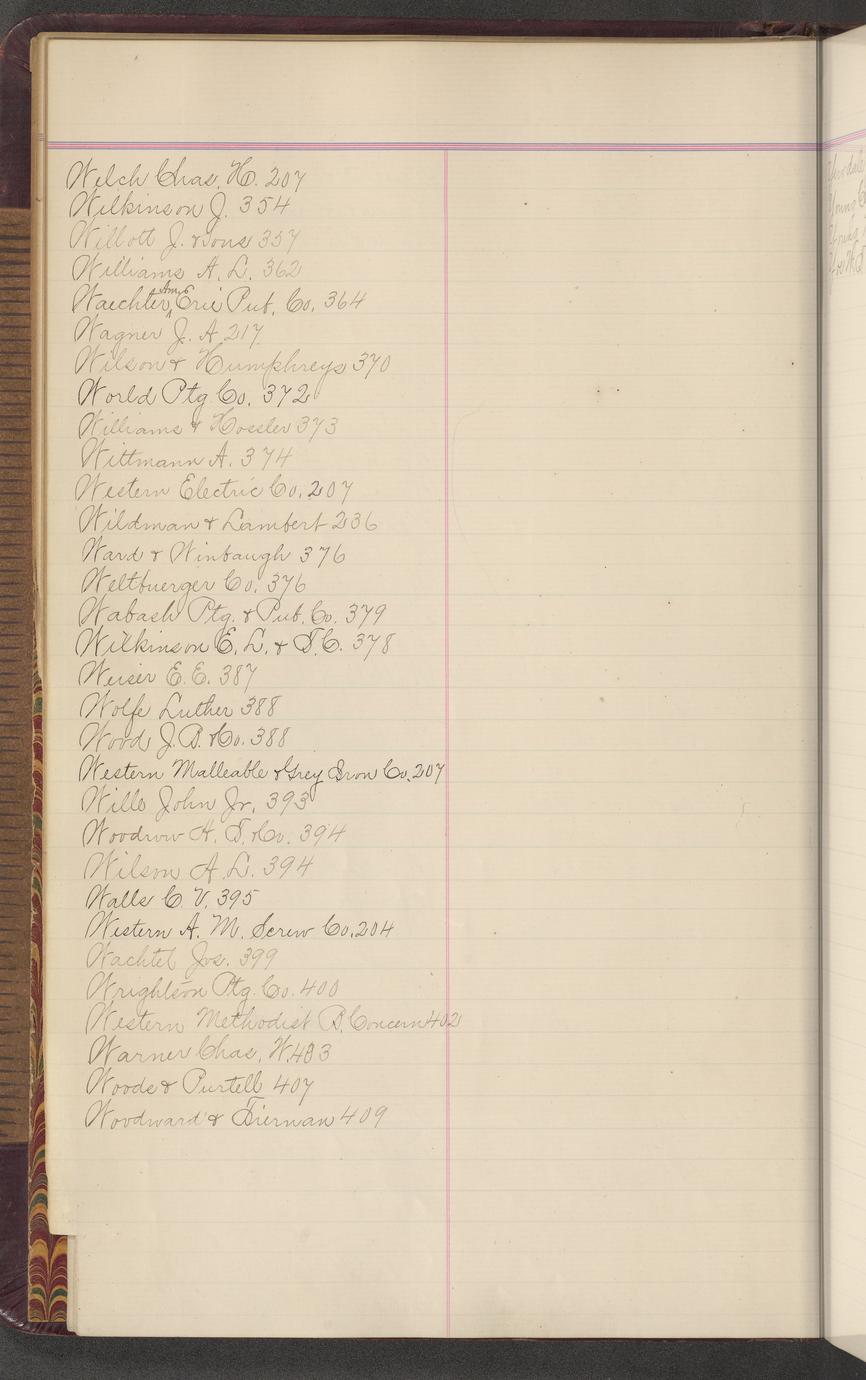 Welch Chas. H. 207
Wilkinson J. 354
Willott J. & Sons 357
Williams A. L. 362
Waechter Ame Erie Pub. Co. 364
Wagner J. A. 217
Wilson & Humphreys 370
World Ptg Co. 372
Williams & Hossler 373
Wittmann A. 374
Western Electric Co. 207
Wildman & Lambert 236
Ward & Winbaugh 376
Weltbuerger Co. 376
Wabash Ptg. & Pub. Co. 379
Wilkinson E. L. & T. C. 378
Weiser E. E. 387
Wolfe Luther 388
Wood J. B. & Co. 388
Western Malleable & Grey Iron Co. 207
Wills John Jr. 393
Woodrow A. T. & Co. 394
Wilson A. L. 394
Walls C. V. 395
Western A. M. Screw Co. 204
Wachtel Jos. 399
Wrightson Ptg. Co. 400
Western Methodist B. Concern 402
Warner Chas. W. 403
Woods & Purtell 407
Woodward & Tiernan 409
Young